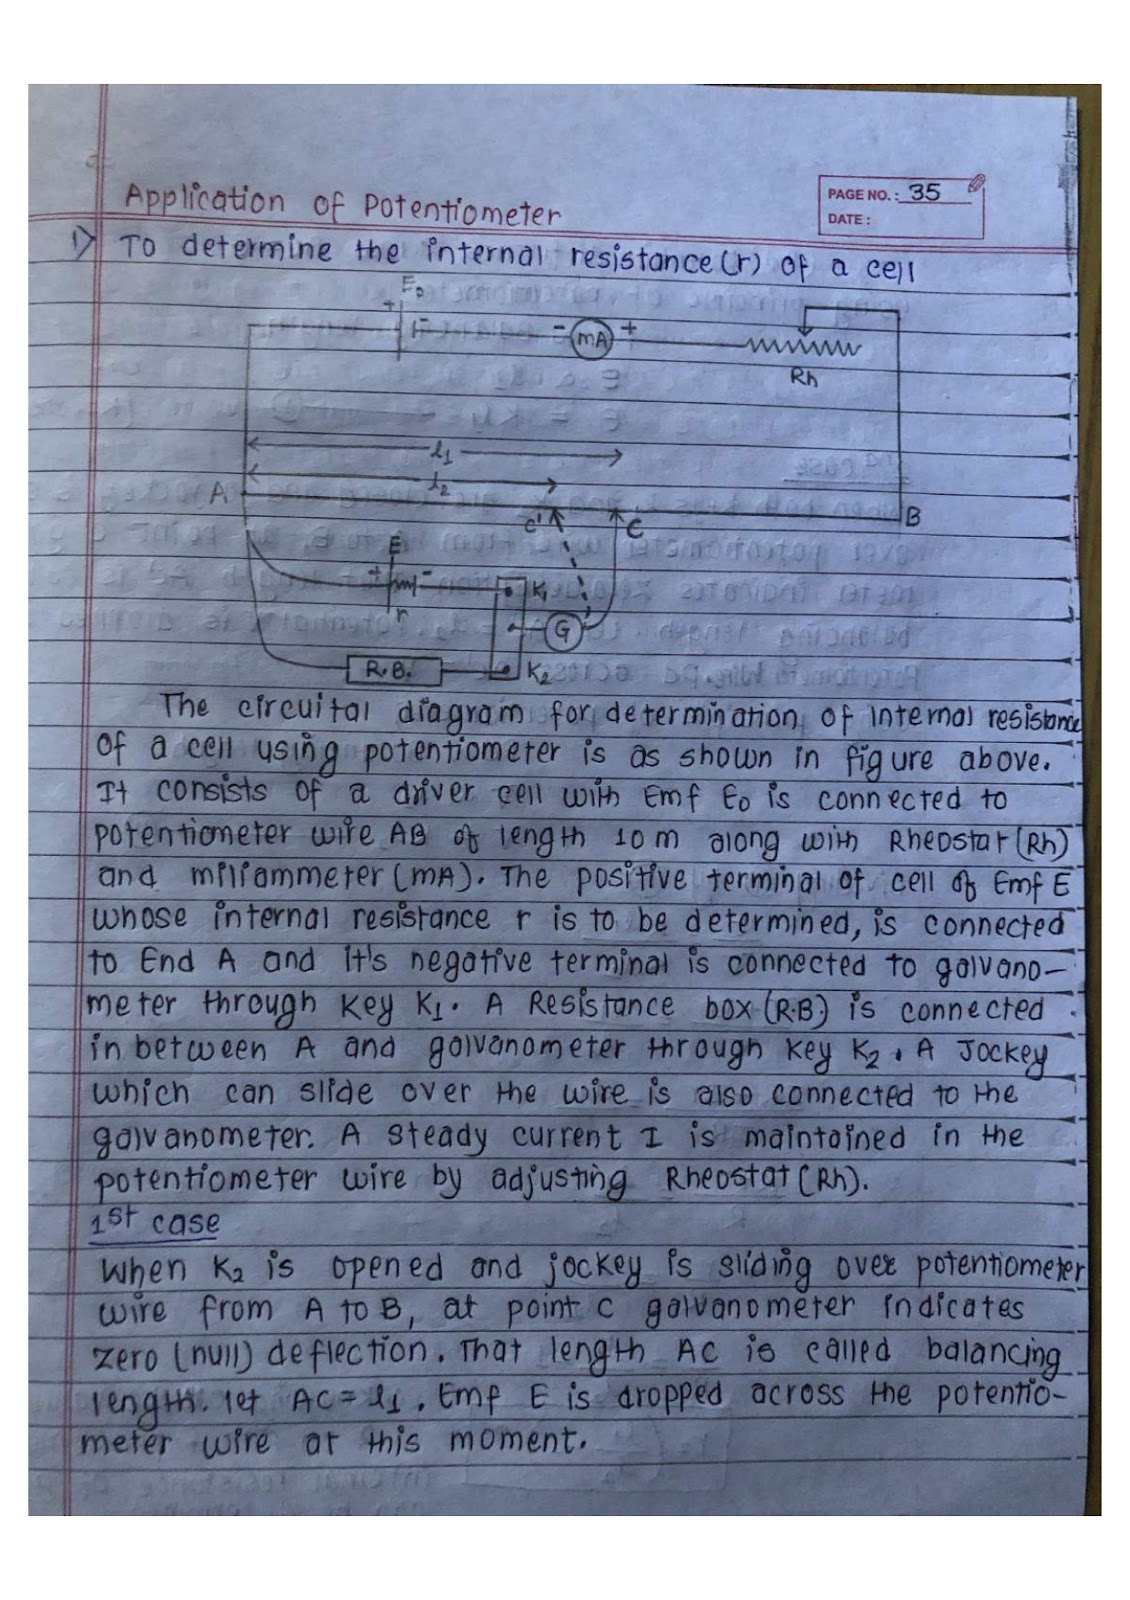 Application of Potentiometer
PAGE NO.: 35
DATE:
1) To determine the internal resistance (r) of a cell
E₀
+ -
- mA +
Rh
l₁
l₂
A
B
C' C
E
+ -
r
K₁
G
R.B.
K₂
The circuital diagram for determination of internal resistance
of a cell using potentiometer is as shown in figure above.
It consists of a driver cell with Emf E₀ is connected to
potentiometer wire AB of length 10 m along with Rheostat (Rh)
and miliammeter (mA). The positive terminal of cell of Emf E
whose internal resistance r is to be determined, is connected
to End A and it's negative terminal is connected to galvano-
meter through Key K₁. A Resistance box (R.B) is connected
in between A and galvanometer through Key K₂. A Jockey
which can slide over the wire is also connected to the
galvanometer. A steady current I is maintained in the
potentiometer wire by adjusting Rheostat (Rh).
1st case
When K₂ is opened and jockey is sliding over potentiometer
wire from A to B, at point C galvanometer indicates
zero (null) deflection. That length AC is called balancing
length. let AC = l₁. Emf E is dropped across the potentio-
meter wire at this moment.